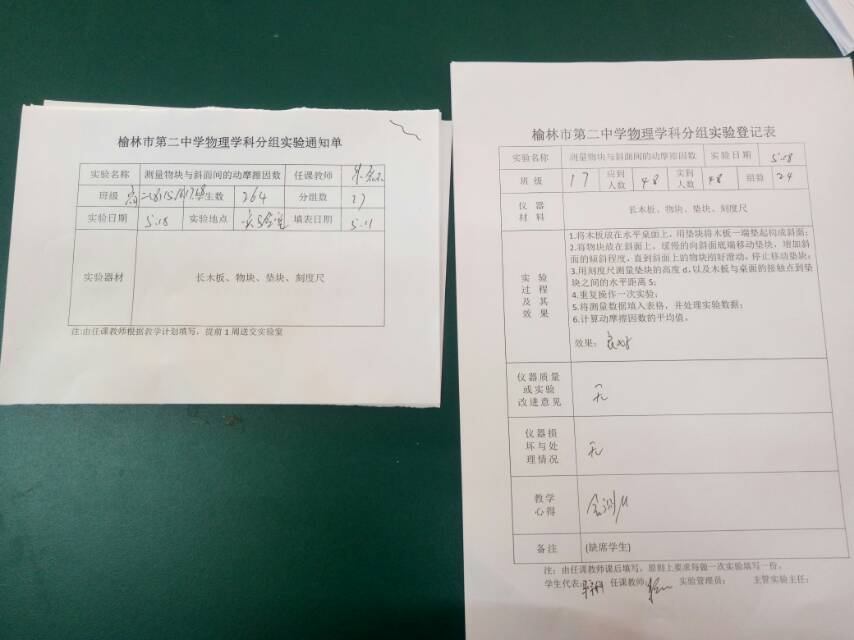 榆林市第二中学物理学科分组实验通知单
实验名称 测量物块与斜面间的动摩擦因数 任课教师
班级 学生数 264 分组数 27
实验日期 5.18 实验地点 填表日期 5.11
实验器材 长木板、物块、垫块、刻度尺
注:由任课教师根据教学计划填写，提前1周送交实验室
榆林市第二中学物理学科分组实验登记表
实验名称 测量物块与斜面间的动摩擦因数 实验日期 5.18
班级 17 应到人数 48 实到人数 48 组数 24
仪器材料 长木板、物块、垫块、刻度尺
实验过程及其效果
1.将木板放在水平桌面上，用垫块将木板一端垫起构成斜面；
2.将物块放在斜面上，缓慢的向斜面底端移动垫块，增加斜
面的倾斜程度，直到斜面上的物块刚好滑动，停止移动垫块；
3.用刻度尺测量垫块的高度d,以及木板与桌面的接触点到垫
块之间的水平距离S；
4.重复操作一次实验；
5.将测量数据填入表格，并处理实验数据；
6.计算动摩擦因数的平均值。
效果：良好
仪器质量
或实验
改进意见 无
仪器损
坏与处
理情况 无
教学
心得 会测μ
备注 (缺席学生)
注：由任课教师课后填写，原则上要求每做一次实验填写一份。
学生代表: 任课教师: 实验管理员: 主管实验主任: